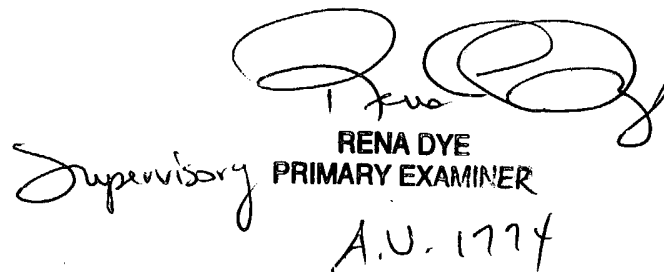 Rena Dye
RENA DYE
Supervisory PRIMARY EXAMINER
A.U. 1774